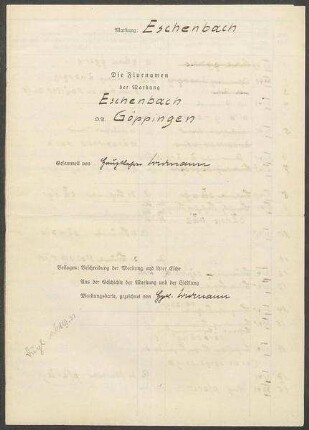 Markung: Eschenbach
Die Flurnamen
der Markung
Eschenbach
O.A. Göppingen
Gesammelt von Hauptlehrer
Beilagen: Beschreibung der Markung und ihrer Teile
Aus der Geschichte der Markung und der Siedlung
Markungskarte, gezeichnet von